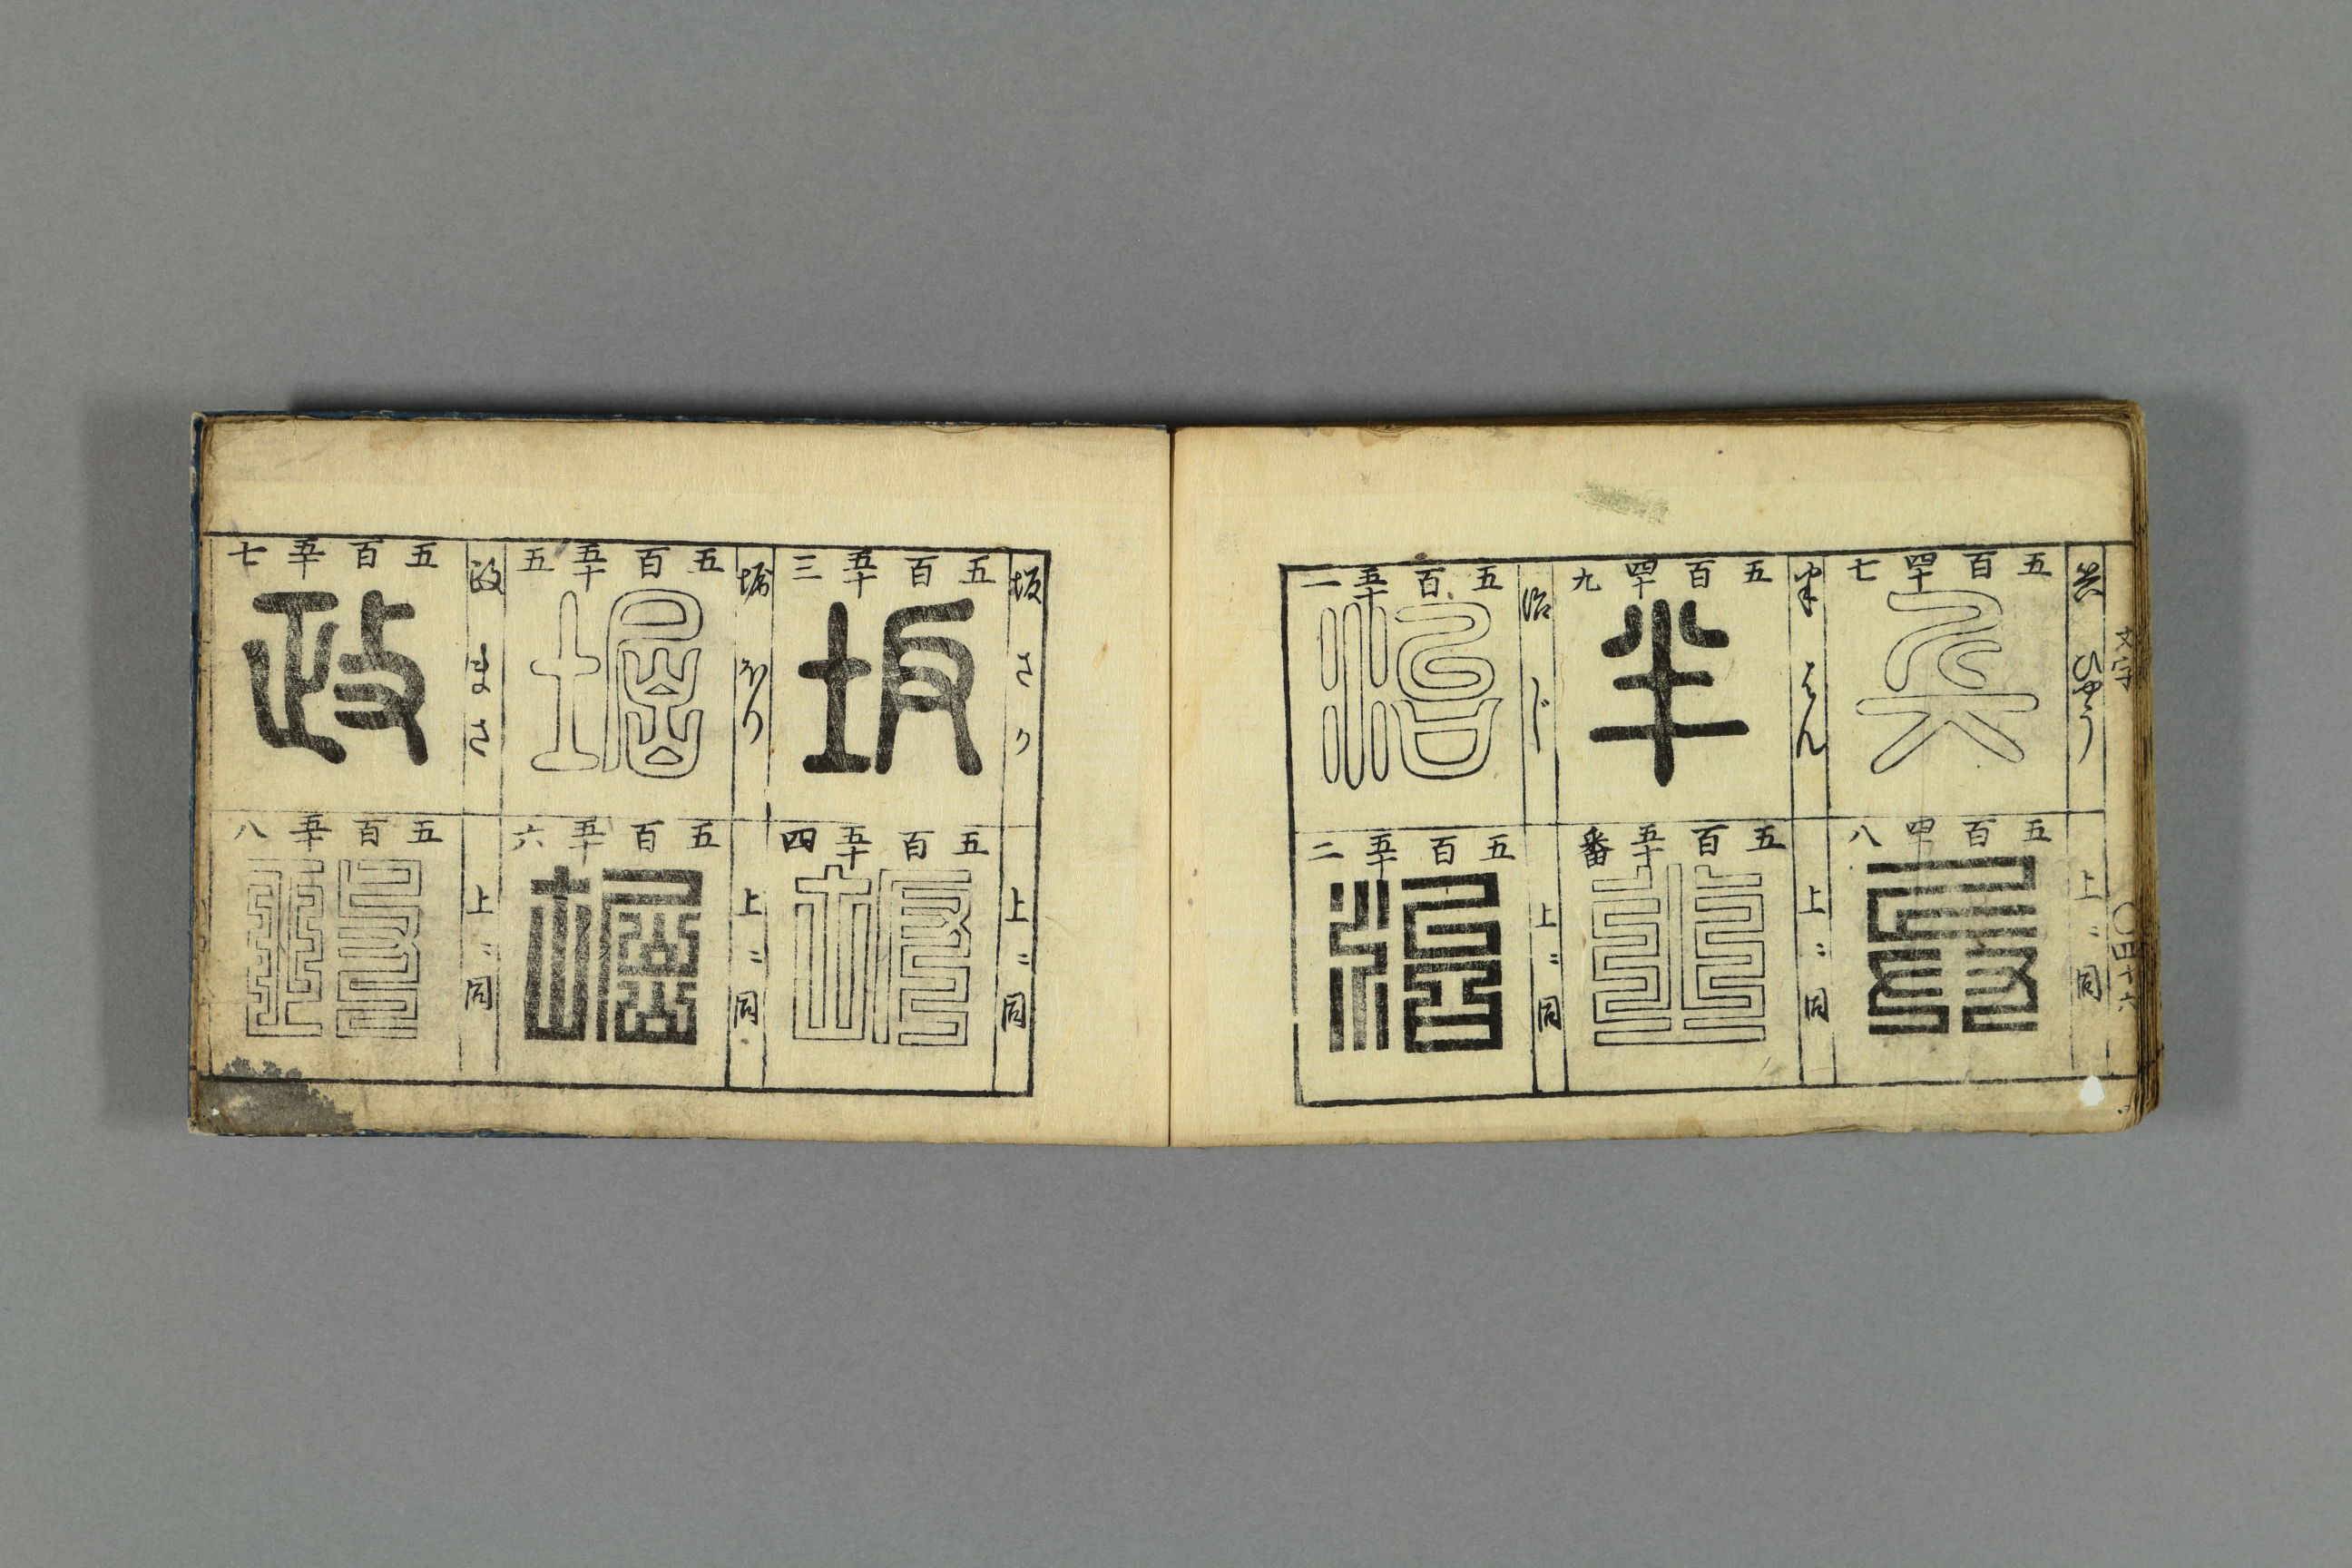 文字
〇四十六
兵 ひやう
五百四十七
兵
上ニ同
五百四十八
兵
半 はん
五百四十九
半
上ニ同
五百五十番
半
治 じ
五百五十一
治
上ニ同
五百五十二
治
坂 さか
五百五十三
坂
上ニ同
五百五十四
坂
堀 ほり
五百五十五
堀
上ニ同
五百五十六
堀
政 まさ
五百五十七
政
上ニ同
五百五十八
政